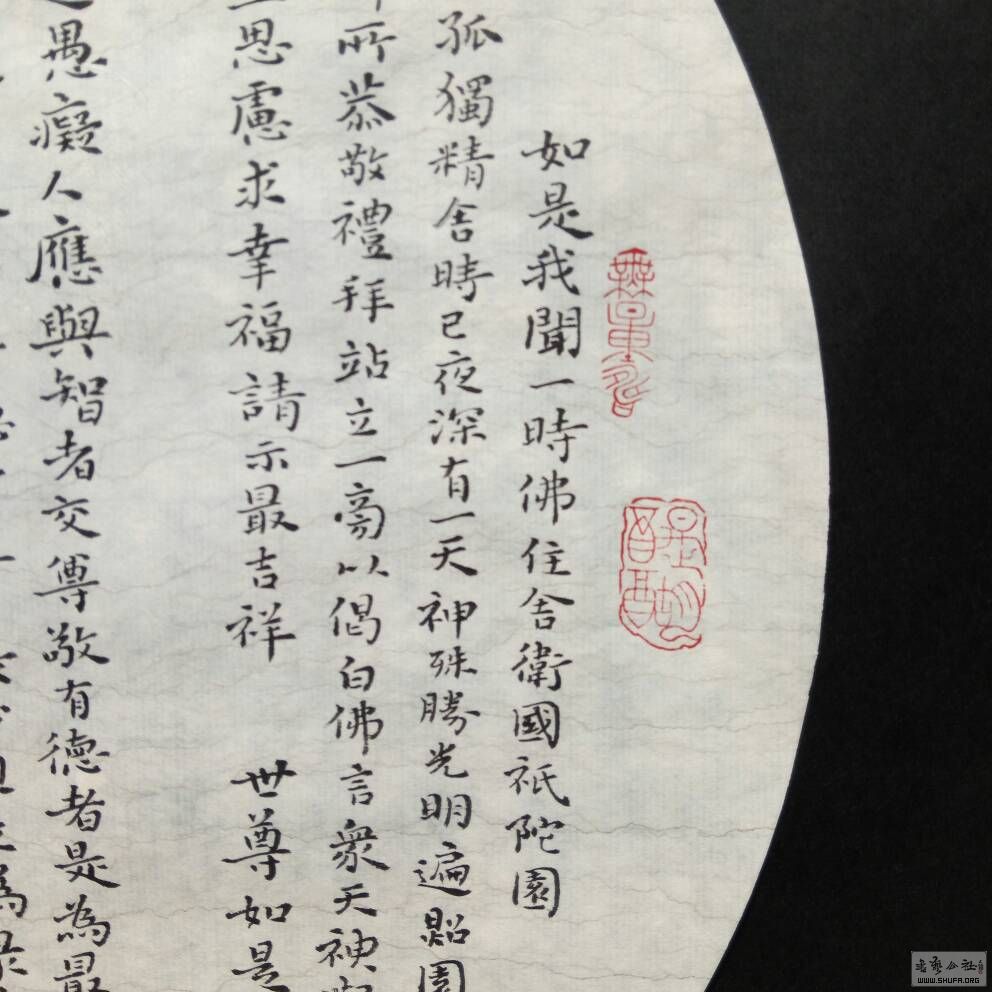 如是我聞一時佛住舍衛國祇陀園
孤獨精舍時已夜深有一天神殊勝光明遍照園
所恭敬禮拜站立一旁以偈白佛言眾天神
思慮求幸福請示最吉祥 世尊如是
愚癡人應與智者交尊敬有德者是為最
WWW.SHUFA.ORG